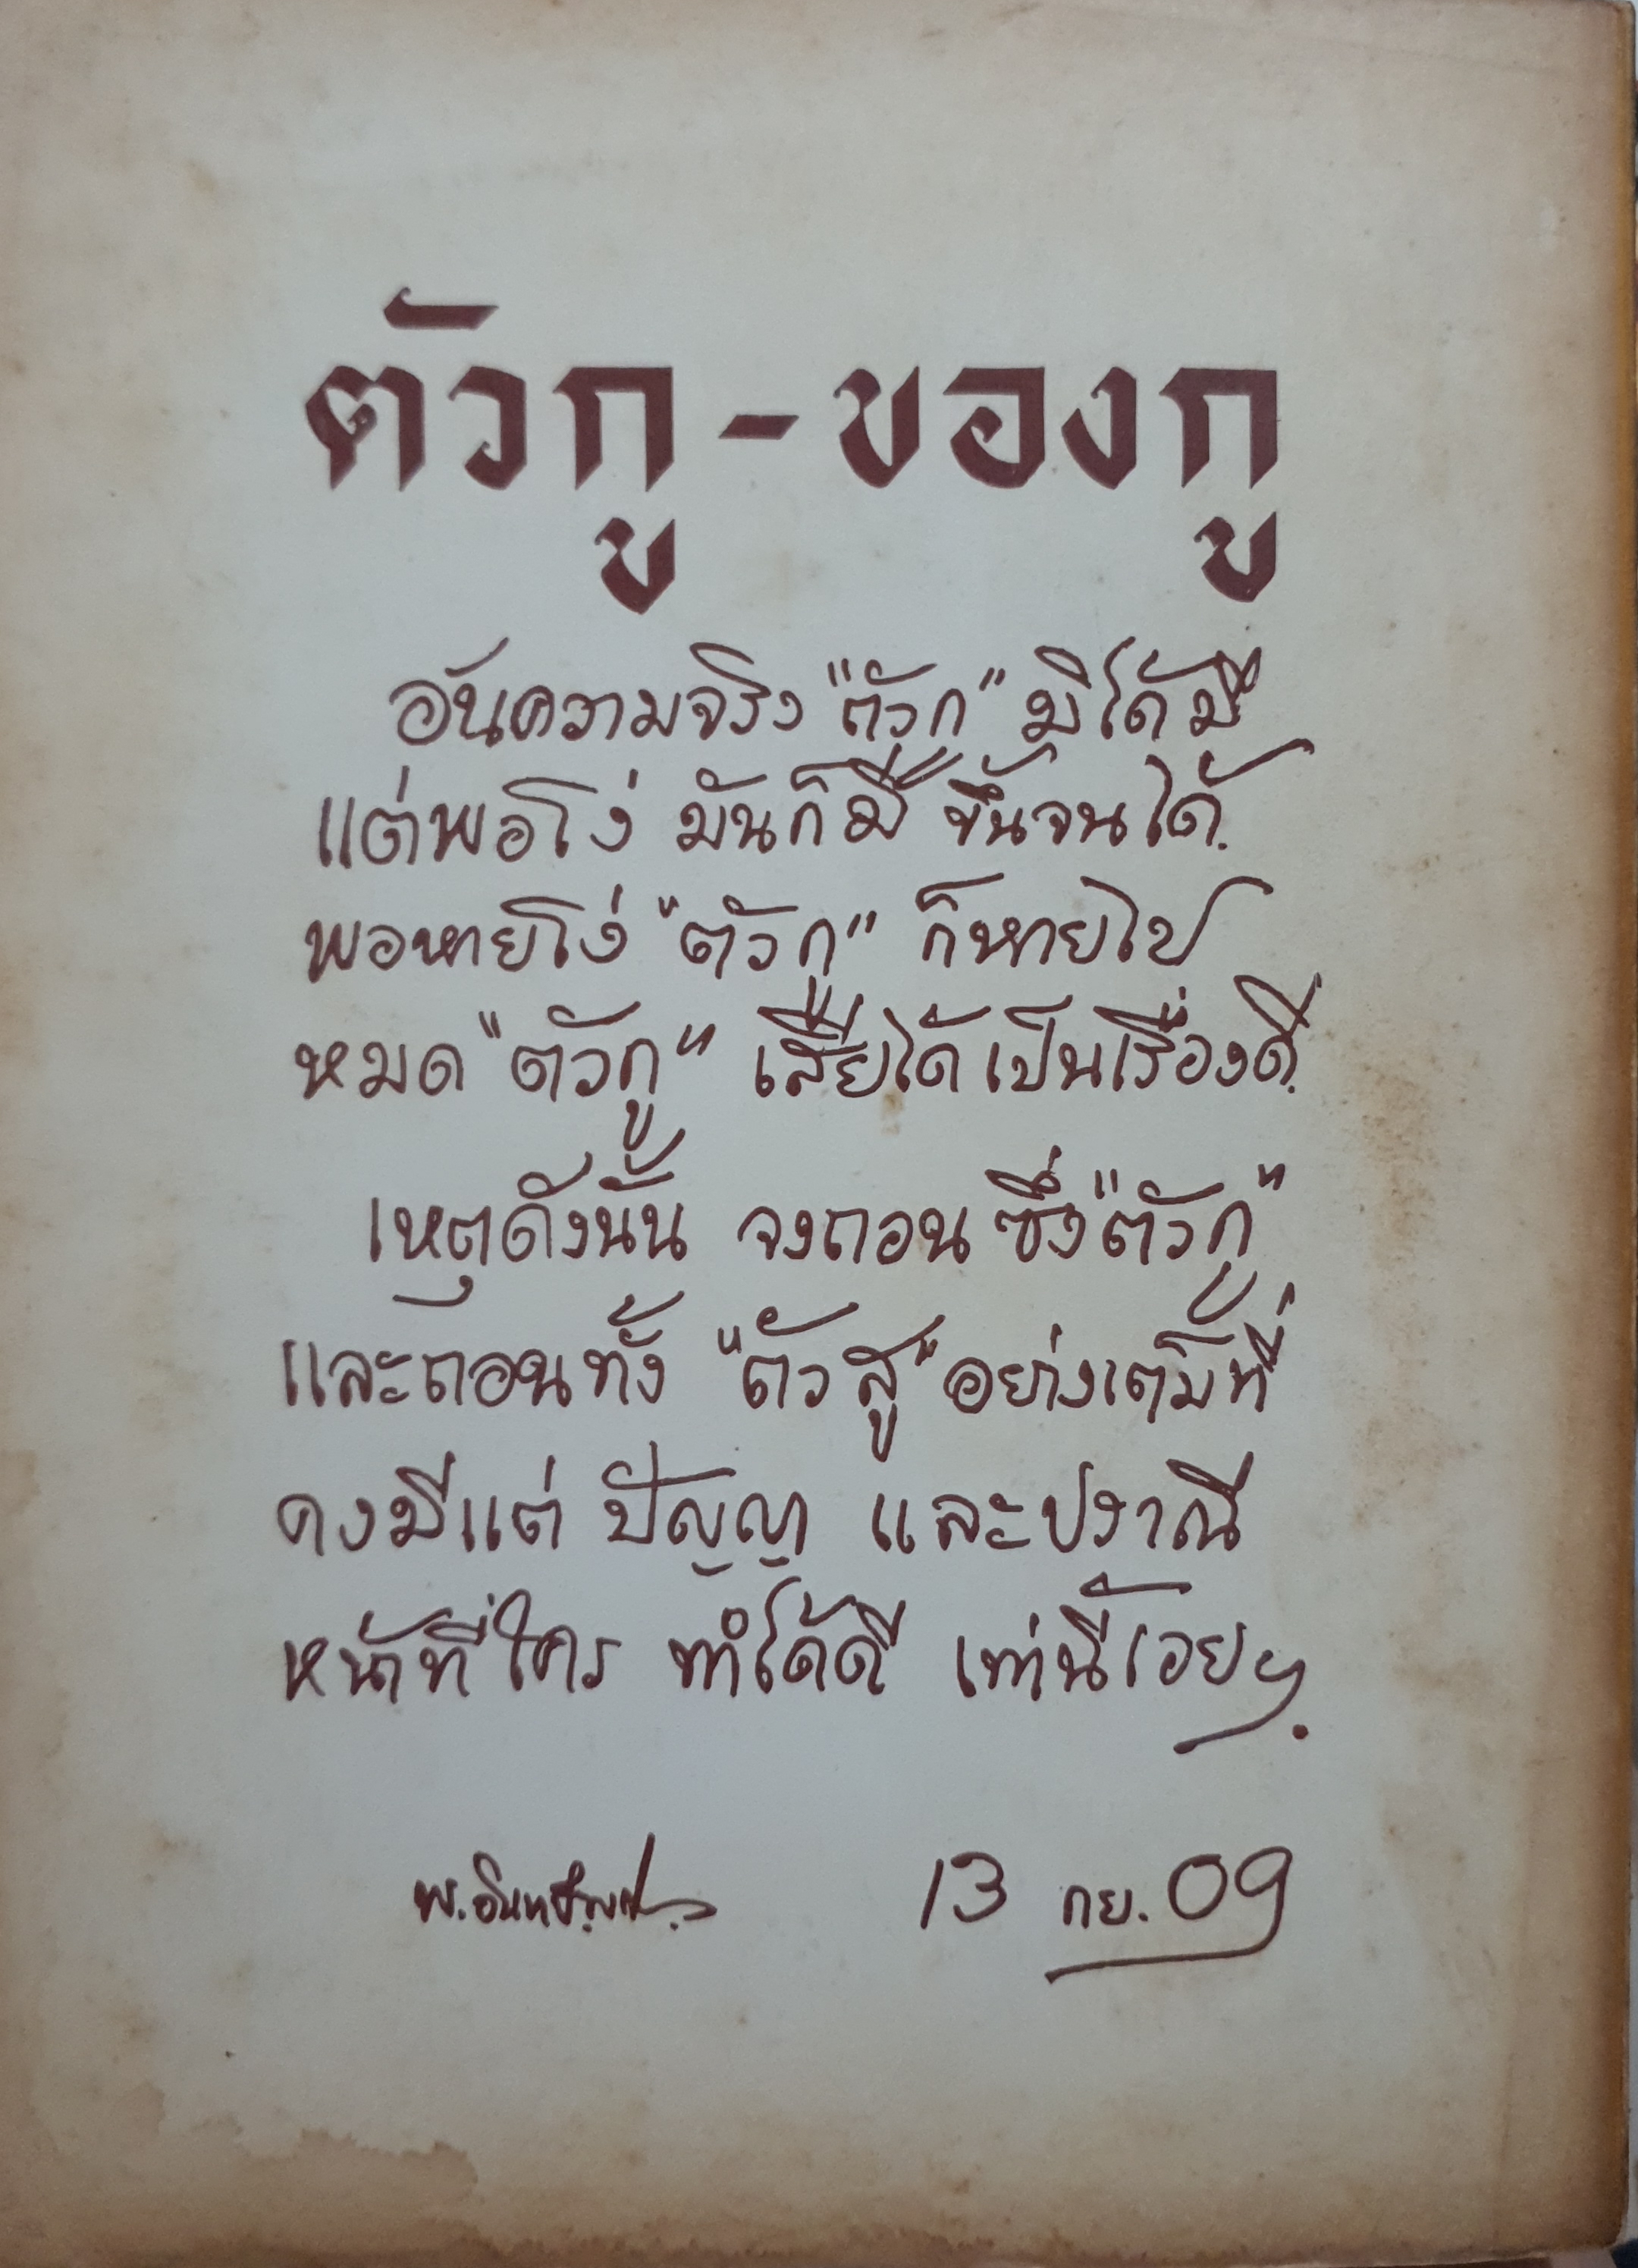 ตัวกู - ของกู
อันความจริง "ตัวกู" มิได้มี
แต่พอโง่ มันก็มี ขึ้นจนได้.
พอหายโง่ "ตัวกู" ก็หายไป
หมด "ตัวกู" เสียได้ เป็นเรื่องดี.
เหตุดังนั้น จงถอน ซึ่ง "ตัวกู"
และถอนทั้ง "ตัวสู" อย่างเต็มที่
คงมีแต่ ปัญญา และปรานี
หน้าที่ใคร ทำได้ดี เท่านี้เอยฯ.
พ. อินทปัญโญ 13 กย. 09